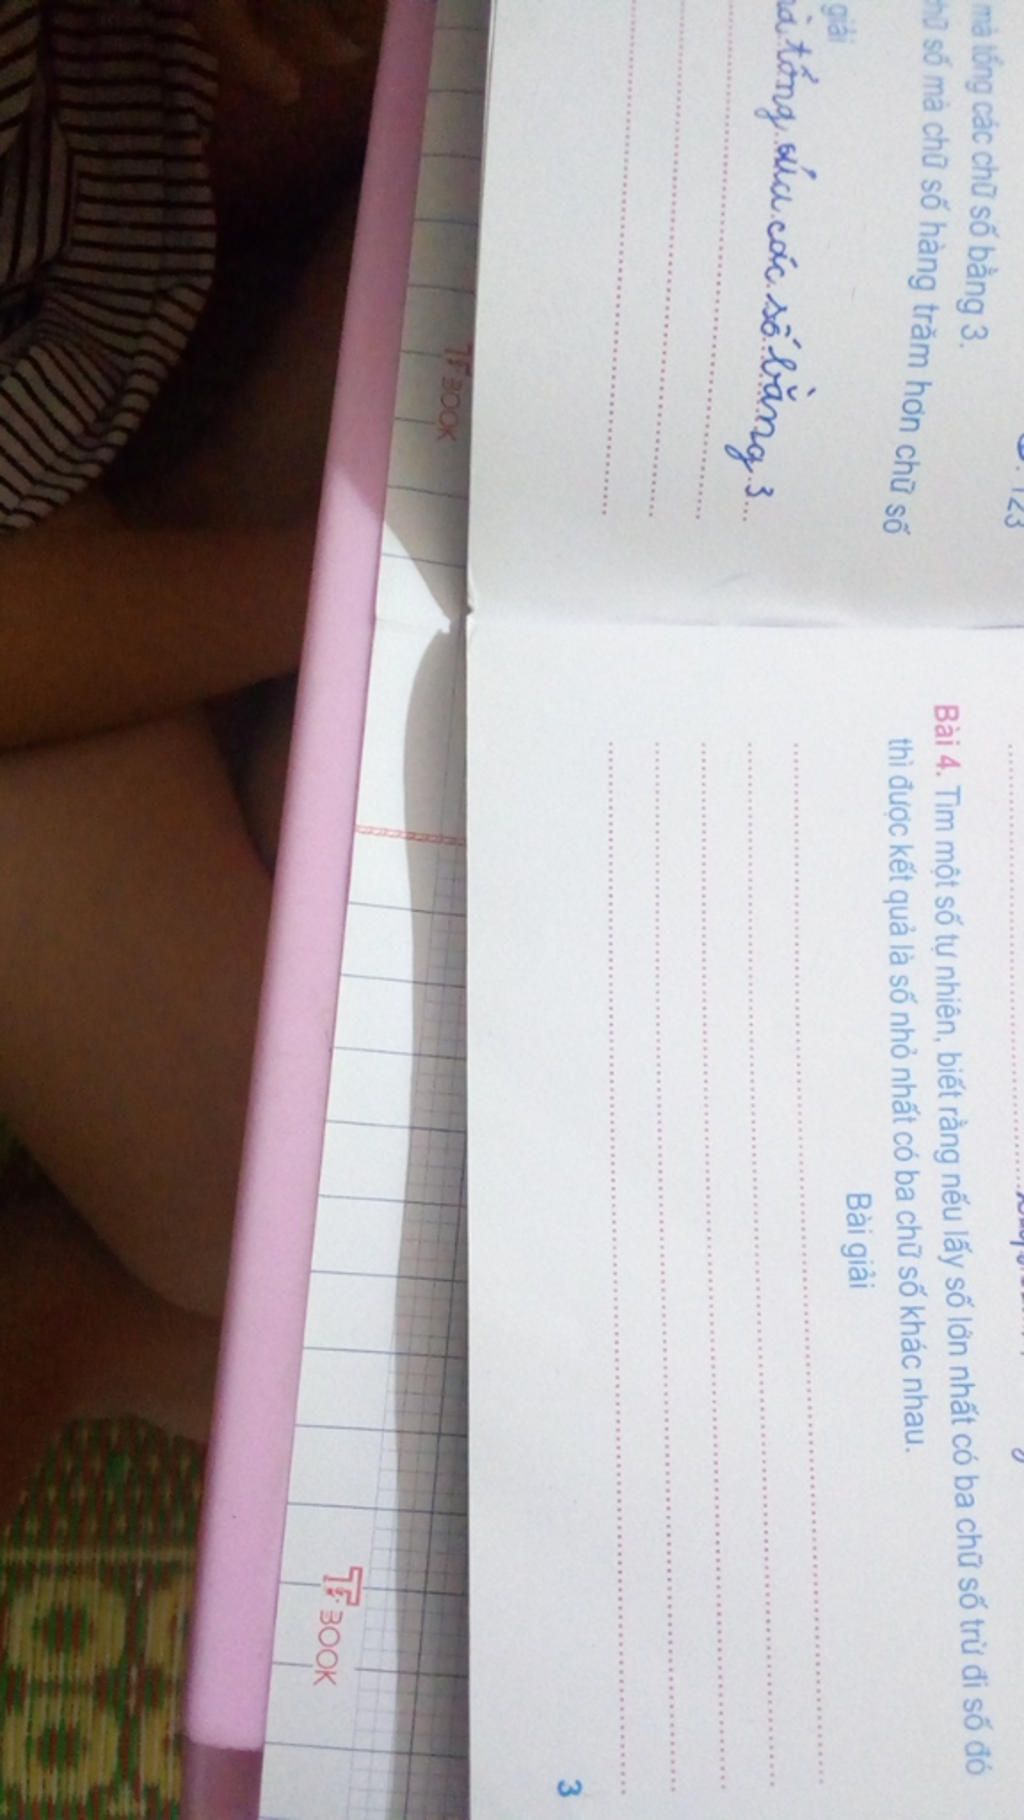 mà tổng các chữ số bằng 3.
chữ số mà chữ số hàng trăm hơn chữ số
giải
tổng của các số bằng 3
123
Bài 4. Tìm một số tự nhiên, biết rằng nếu lấy số lớn nhất có ba chữ số trừ đi số đó
thì được kết quả là số nhỏ nhất có ba chữ số khác nhau.
Bài giải
3
BOOK
BOOK